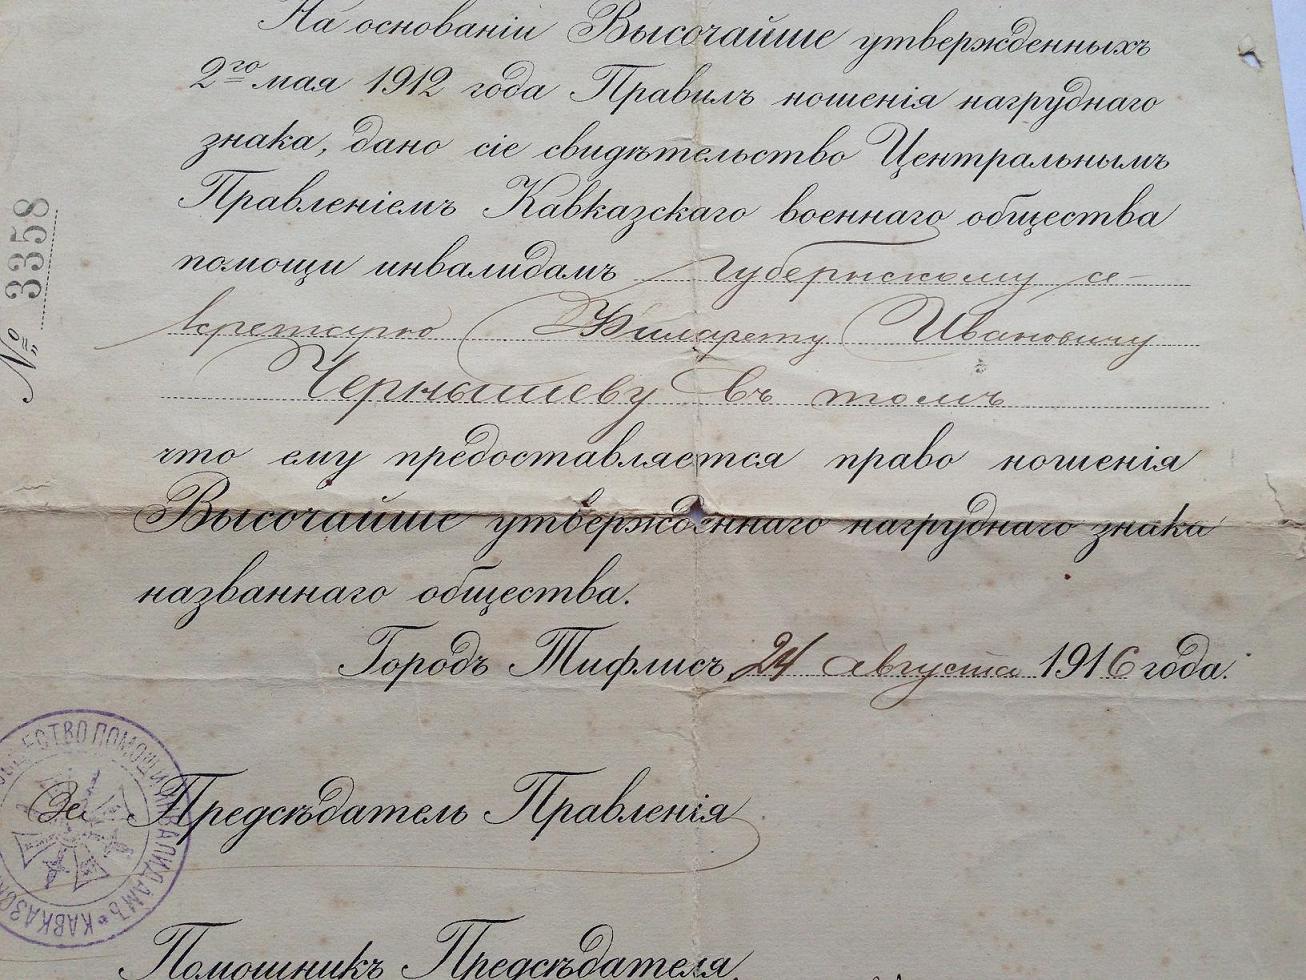 На основаніи Высочайше утвержденныхъ
2го мая 1912 года Правилъ ношенія нагруднаго
знака, дано сіе свидѣтельство Центральнымъ
Правленіемъ Кавказскаго военнаго общества
помощи инвалидамъ губернскому се-
кретарю Филарету Ивановичу
Чернышеву въ томъ
что ему предоставляется право ношенія
Высочайше утвержденнаго нагруднаго знака
названнаго общества.
Городъ Тифлисъ 24 августа 1916 года.
За Предсѣдатель Правленія
Помошникъ Предсѣдателя
№ 3358
ПОМОЩИ ИНВАЛИДАМЪ * КАВКАЗ